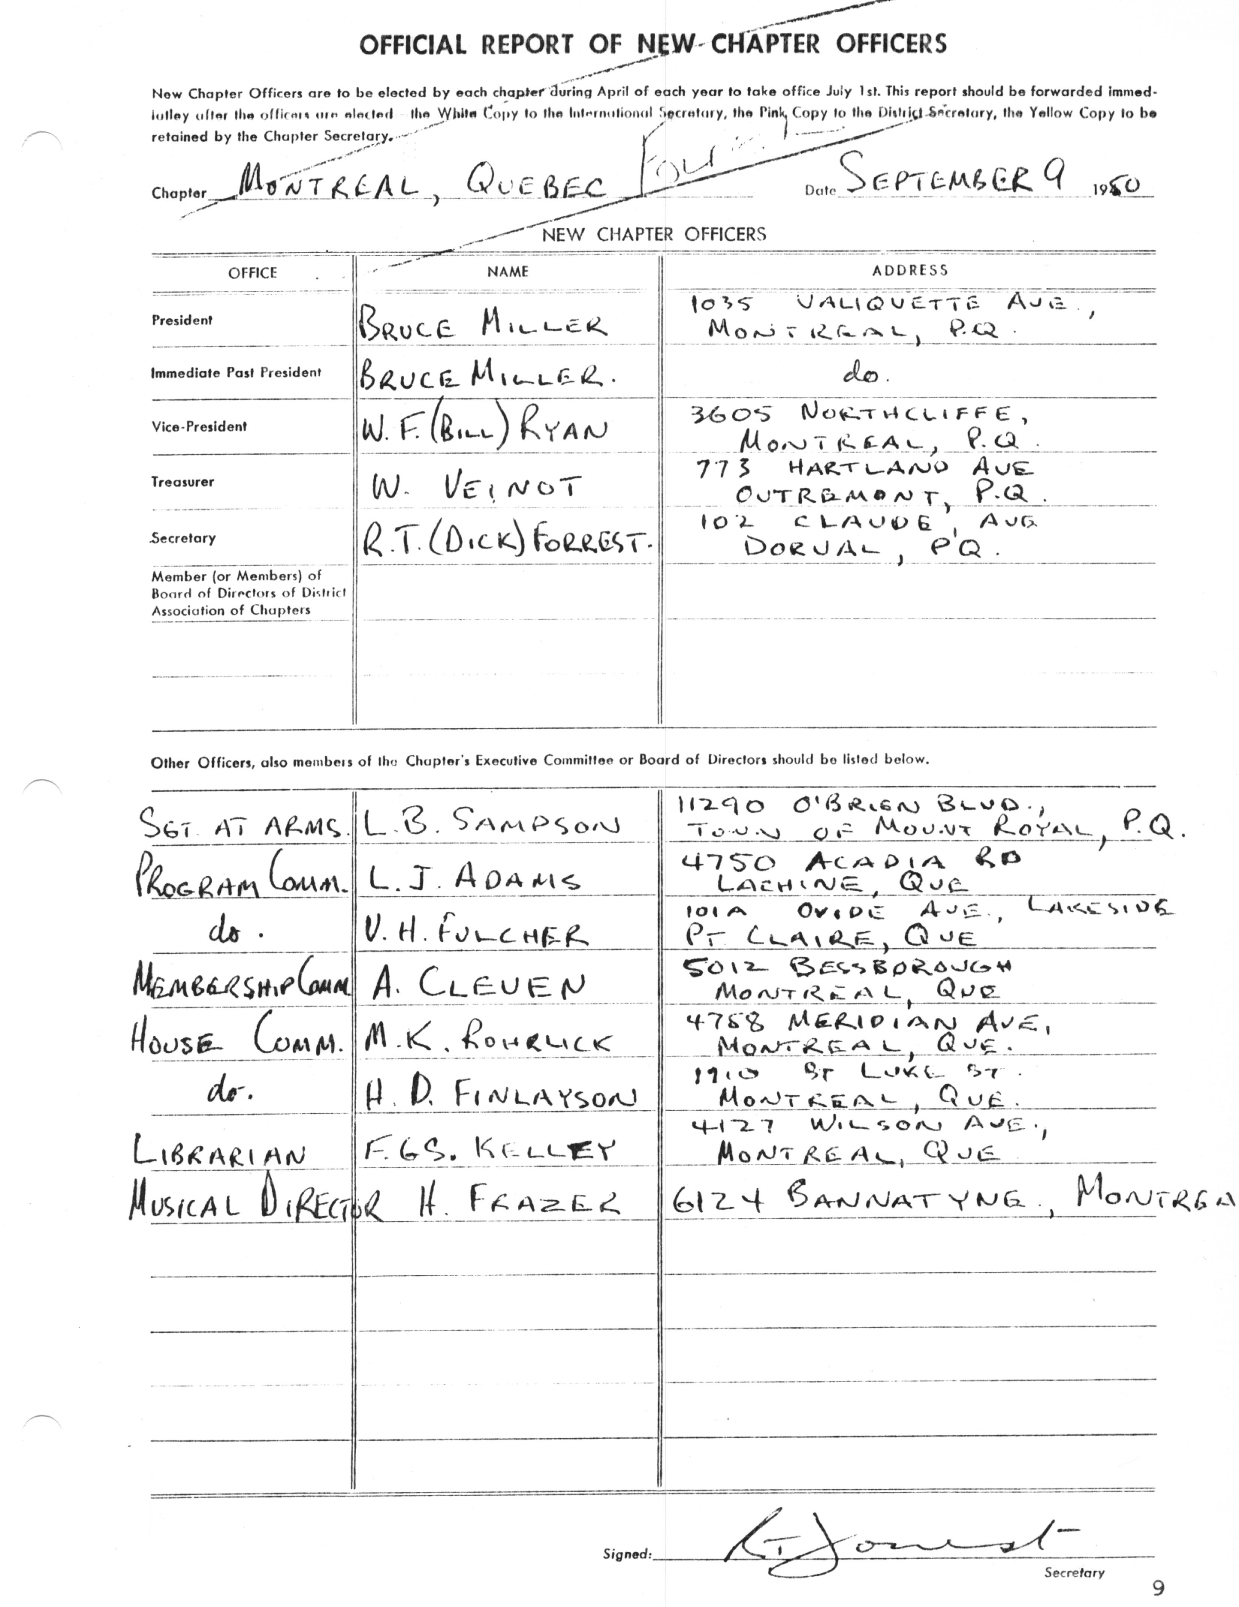 OFFICIAL REPORT OF NEW CHAPTER OFFICERS
New Chapter Officers are to be elected by each chapter during April of each year to take office July 1st. This report should be forwarded immed-
iatley after the officers are elected - the White Copy to the International Secretary, the Pink Copy to the District Secretary, the Yellow Copy to be
retained by the Chapter Secretary.
Chapter MONTREAL, QUEBEC Date SEPTEMBER 9 1950
NEW CHAPTER OFFICERS
OFFICE NAME ADDRESS
President BRUCE MILLER 1035 VALIQUETTE AVE.,
MONTREAL, P.Q.
Immediate Past President BRUCE MILLER. do.
Vice-President W. F. (BILL) RYAN 3605 NORTHCLIFFE,
MONTREAL, P.Q.
Treasurer W. VEINOT 773 HARTLAND AVE
OUTREMONT, P.Q.
Secretary R.T. (DICK) FORREST. 102 CLAUDE, AVE
DORVAL, P.Q.
Member (or Members) of
Board of Directors of District
Association of Chapters
Other Officers, also members of the Chapter's Executive Committee or Board of Directors should be listed below.
SGT. AT ARMS. L.B. SAMPSON 11290 O'BRIEN BLVD.,
TOWN OF MOUNT ROYAL, P.Q.
PROGRAM COMM. L.J. ADAMS 4750 ACADIA RD
LACHINE, QUE
do. V.H. FULCHER 101A OVIDE AVE., LAKESIDE
PT CLAIRE, QUE
MEMBERSHIP COMM A. CLEVEN 5012 BESSBOROUGH
MONTREAL, QUE
HOUSE COMM. M.K. ROHRLICK 4758 MERIDIAN AVE,
MONTREAL, QUE.
do. H.D. FINLAYSON 1910 ST LUKE ST.
MONTREAL, QUE.
LIBRARIAN F.GS. KELLEY 4127 WILSON AVE.,
MONTREAL, QUE
MUSICAL DIRECTOR H. FRAZER 6124 BANNATYNE., MONTREA
Signed: R.T. Forrest
Secretary
9